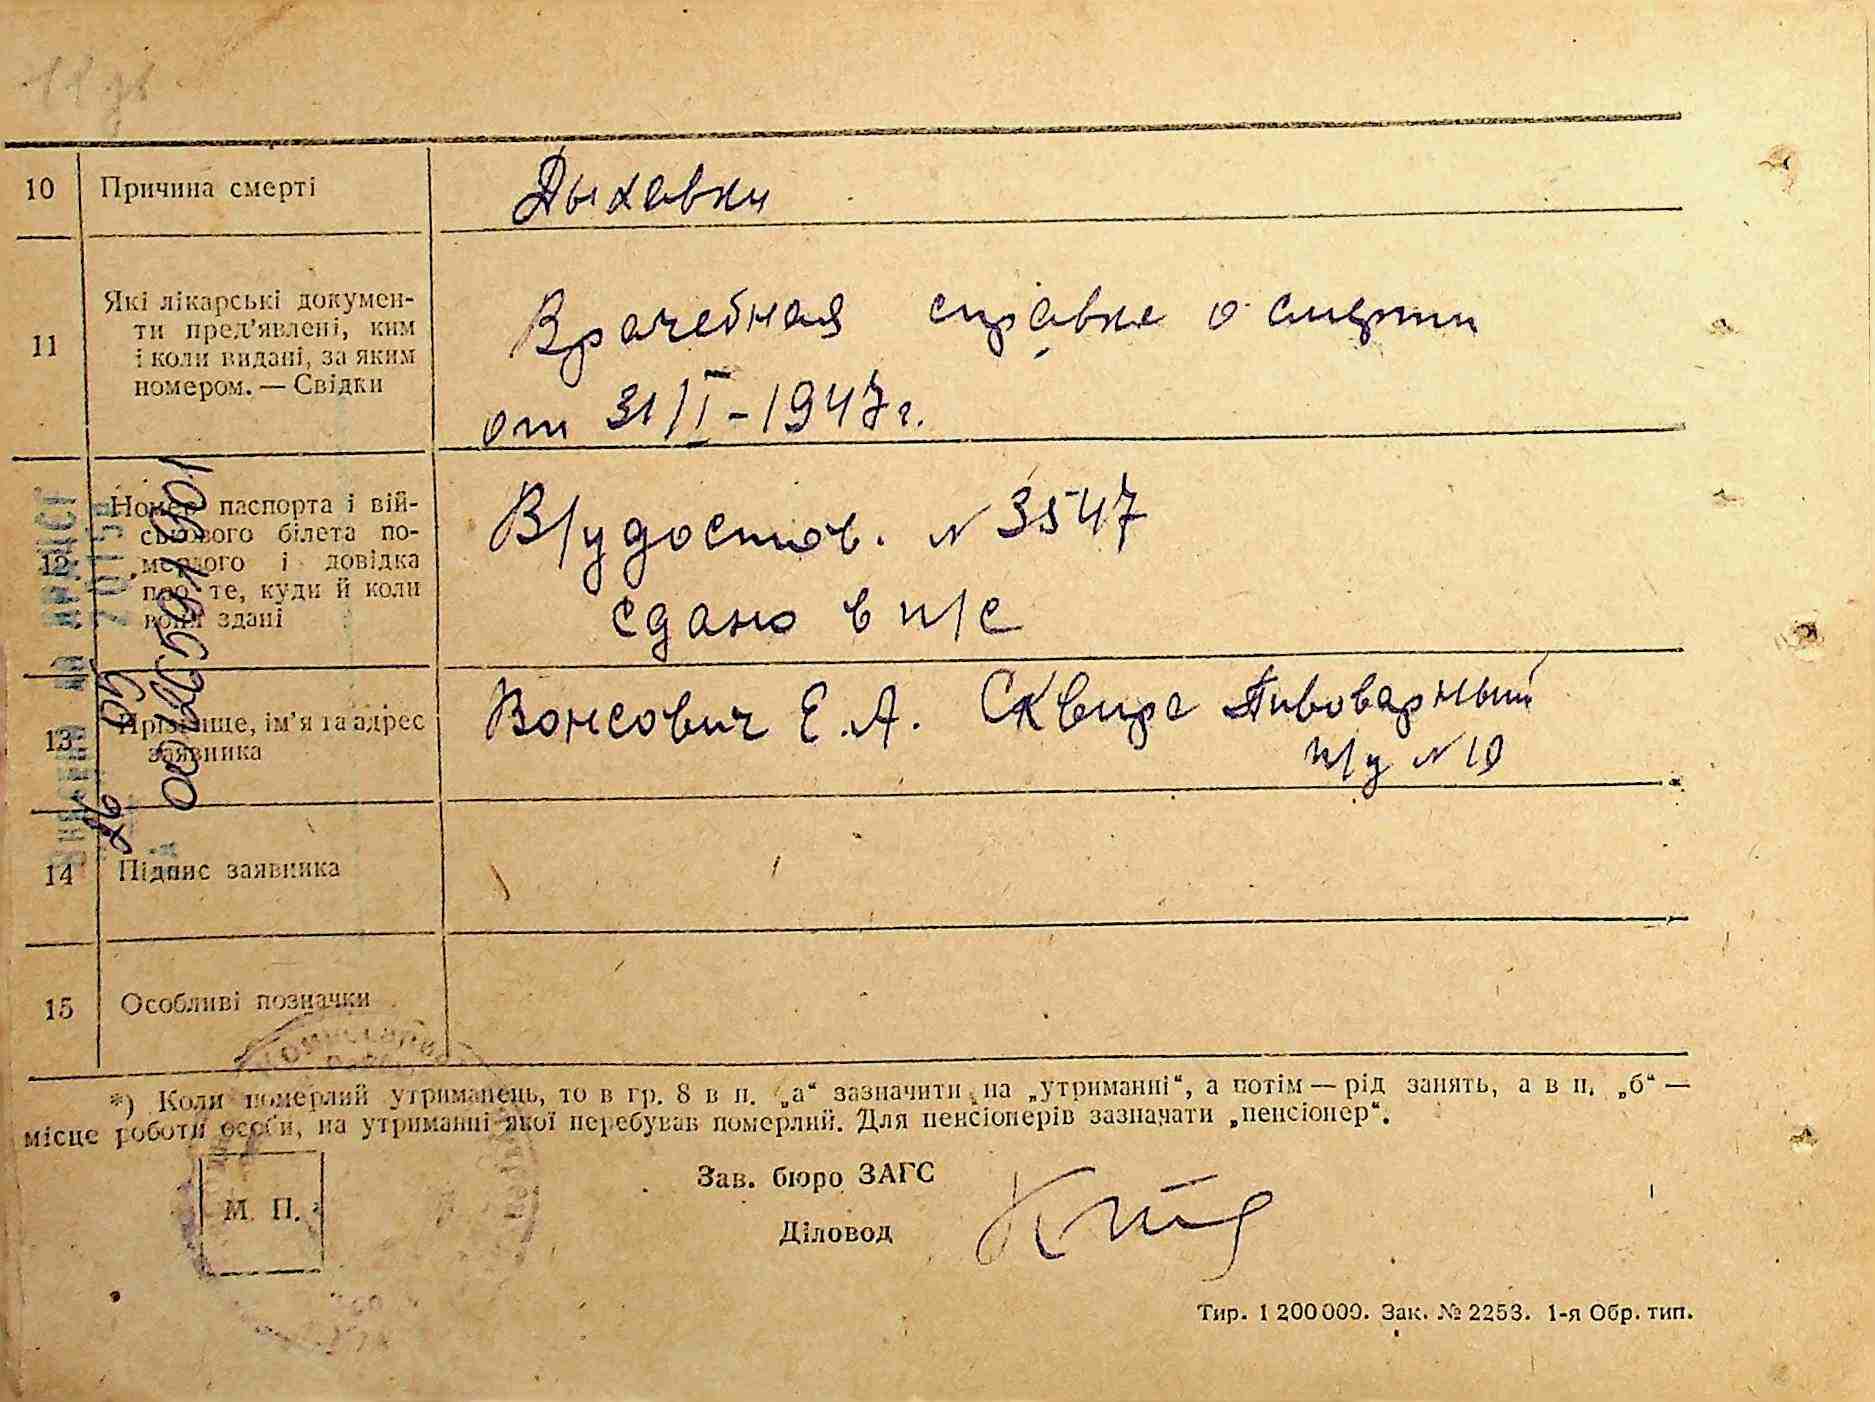 10 Причина смерті
Дыхавки
11 Які лікарські докумен-
ти пред'явлені, ким
і коли видані, за яким
номером. — Свідки
Врачебная справка о смерти
от 31/I-1947г.
12 Номер паспорта і вій-
ськового білета по-
мерлого і довідка
про те, куди й коли
вони здані
В/удостов. № 3547
сдано в п/с
13 Прізвище, ім'я та адрес
заявника
Вонсович Е.А. Сквира Пивоварный
п/у № 10
14 Підпис заявника
15 Особливі позначки
*) Коли померлий утриманець, то в гр. 8 в п. „а“ зазначити на „утриманні“, а потім — рід занять, а в п. „б“ —
місце роботи особи, на утриманні якої перебував померлий. Для пенсіонерів зазначати „пенсіонер“.
М. П.
Зав. бюро ЗАГС
Діловод
Тир. 1 200 000. Зак. № 2253. 1-я Обр. тип.